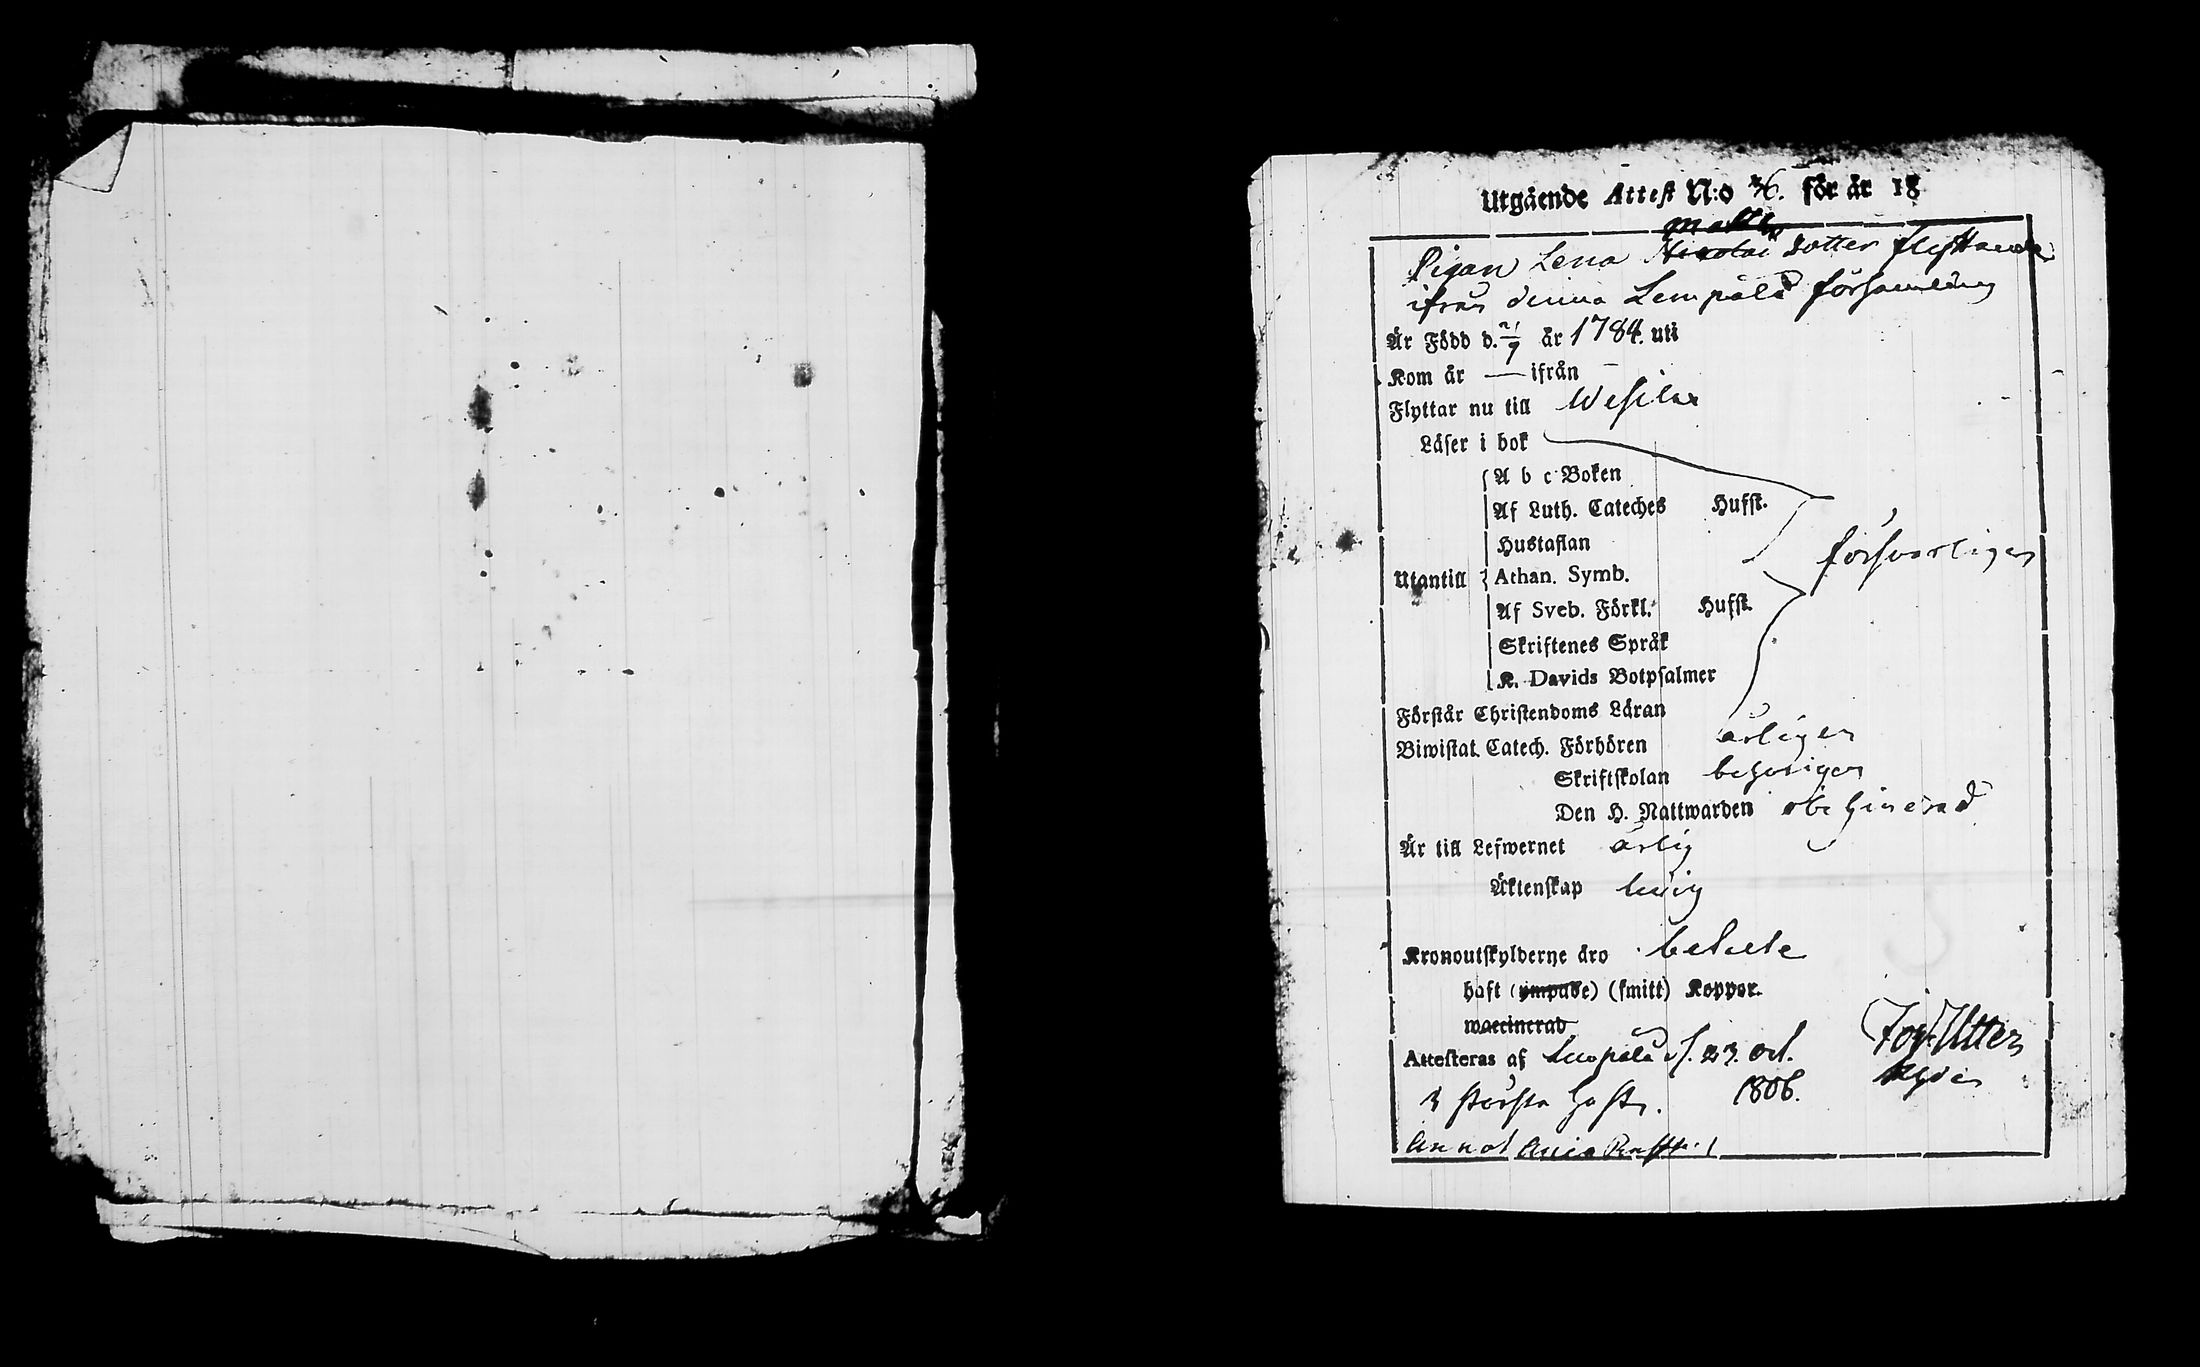 Utgående Attest N:o 36. för år 18
Matts
Pigan Lena Nicolai dotter flyttande
ifrån denna Lempälä församling
Är Född d. 21/9 år 1784. uti
Kom år — ifrån —
Flyttar nu till Wesilax
Läser i bok
A b c Boken
Af Luth. Cateches Hufst.
Hustaflan
försvarligen
Utantill Athan. Symb.
Af Sveb. Förkl. Hufst.
Skriftenes Språk
K. Davids Botpsalmer
Förstår Christendoms Läran
Biwistat Catech. Förhören årligen
Skriftskolan behörigen
Den H. Nattwarden obehindrad
Är till Lefwernet ärlig
Äktenskap ledig
Kronoutskylderne äro betalte
haft (ympade) (smitt) Koppor.
waccinerad
Attesteras af Lempälä d. 23. Oct.
1806.